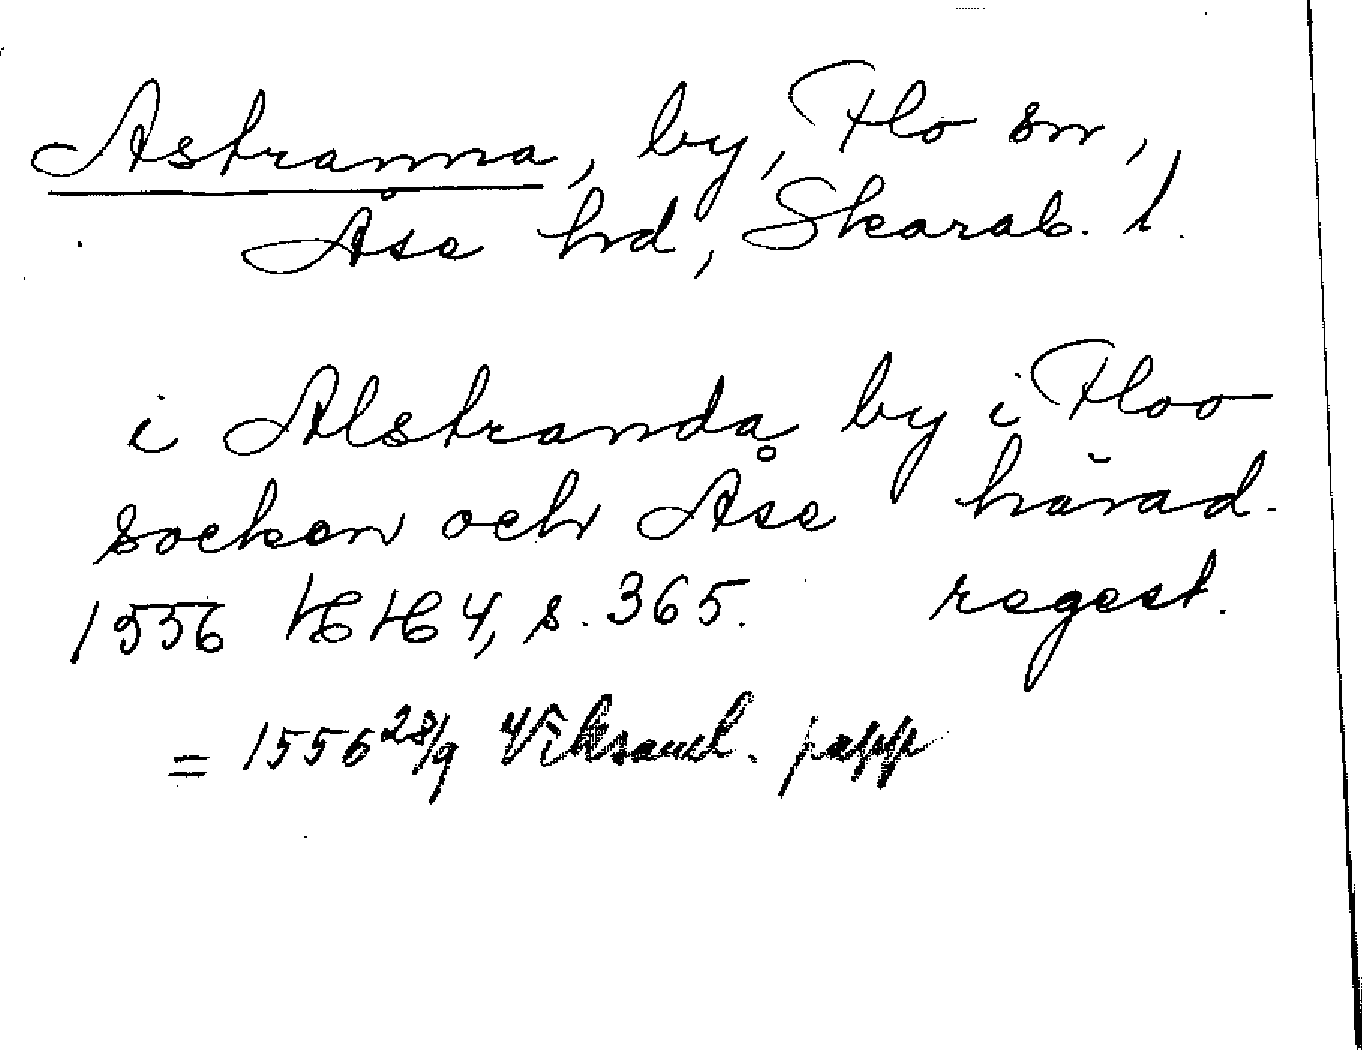 Astranna, by, Flo sn,
Åse hd, Skarab. l.
i Alstranda by i Floo
socken och Åse härad.
1556 HH 4, s. 365. regest.
= 1556 28/9 papp